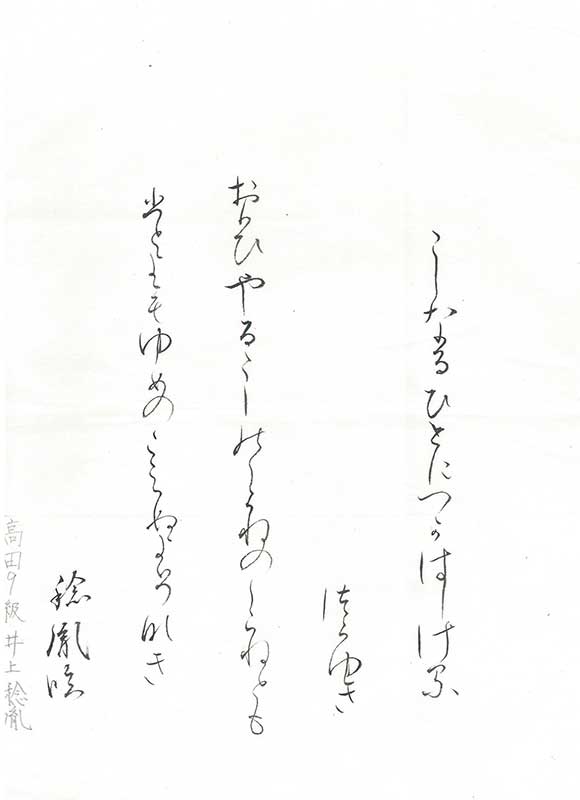 こしなるひとにつかはしける
つらゆき
おもひやるこしのしらねのしらねとも
ひとよもゆめのこえぬよそなき
稔胤臨
高田9級 井上稔胤